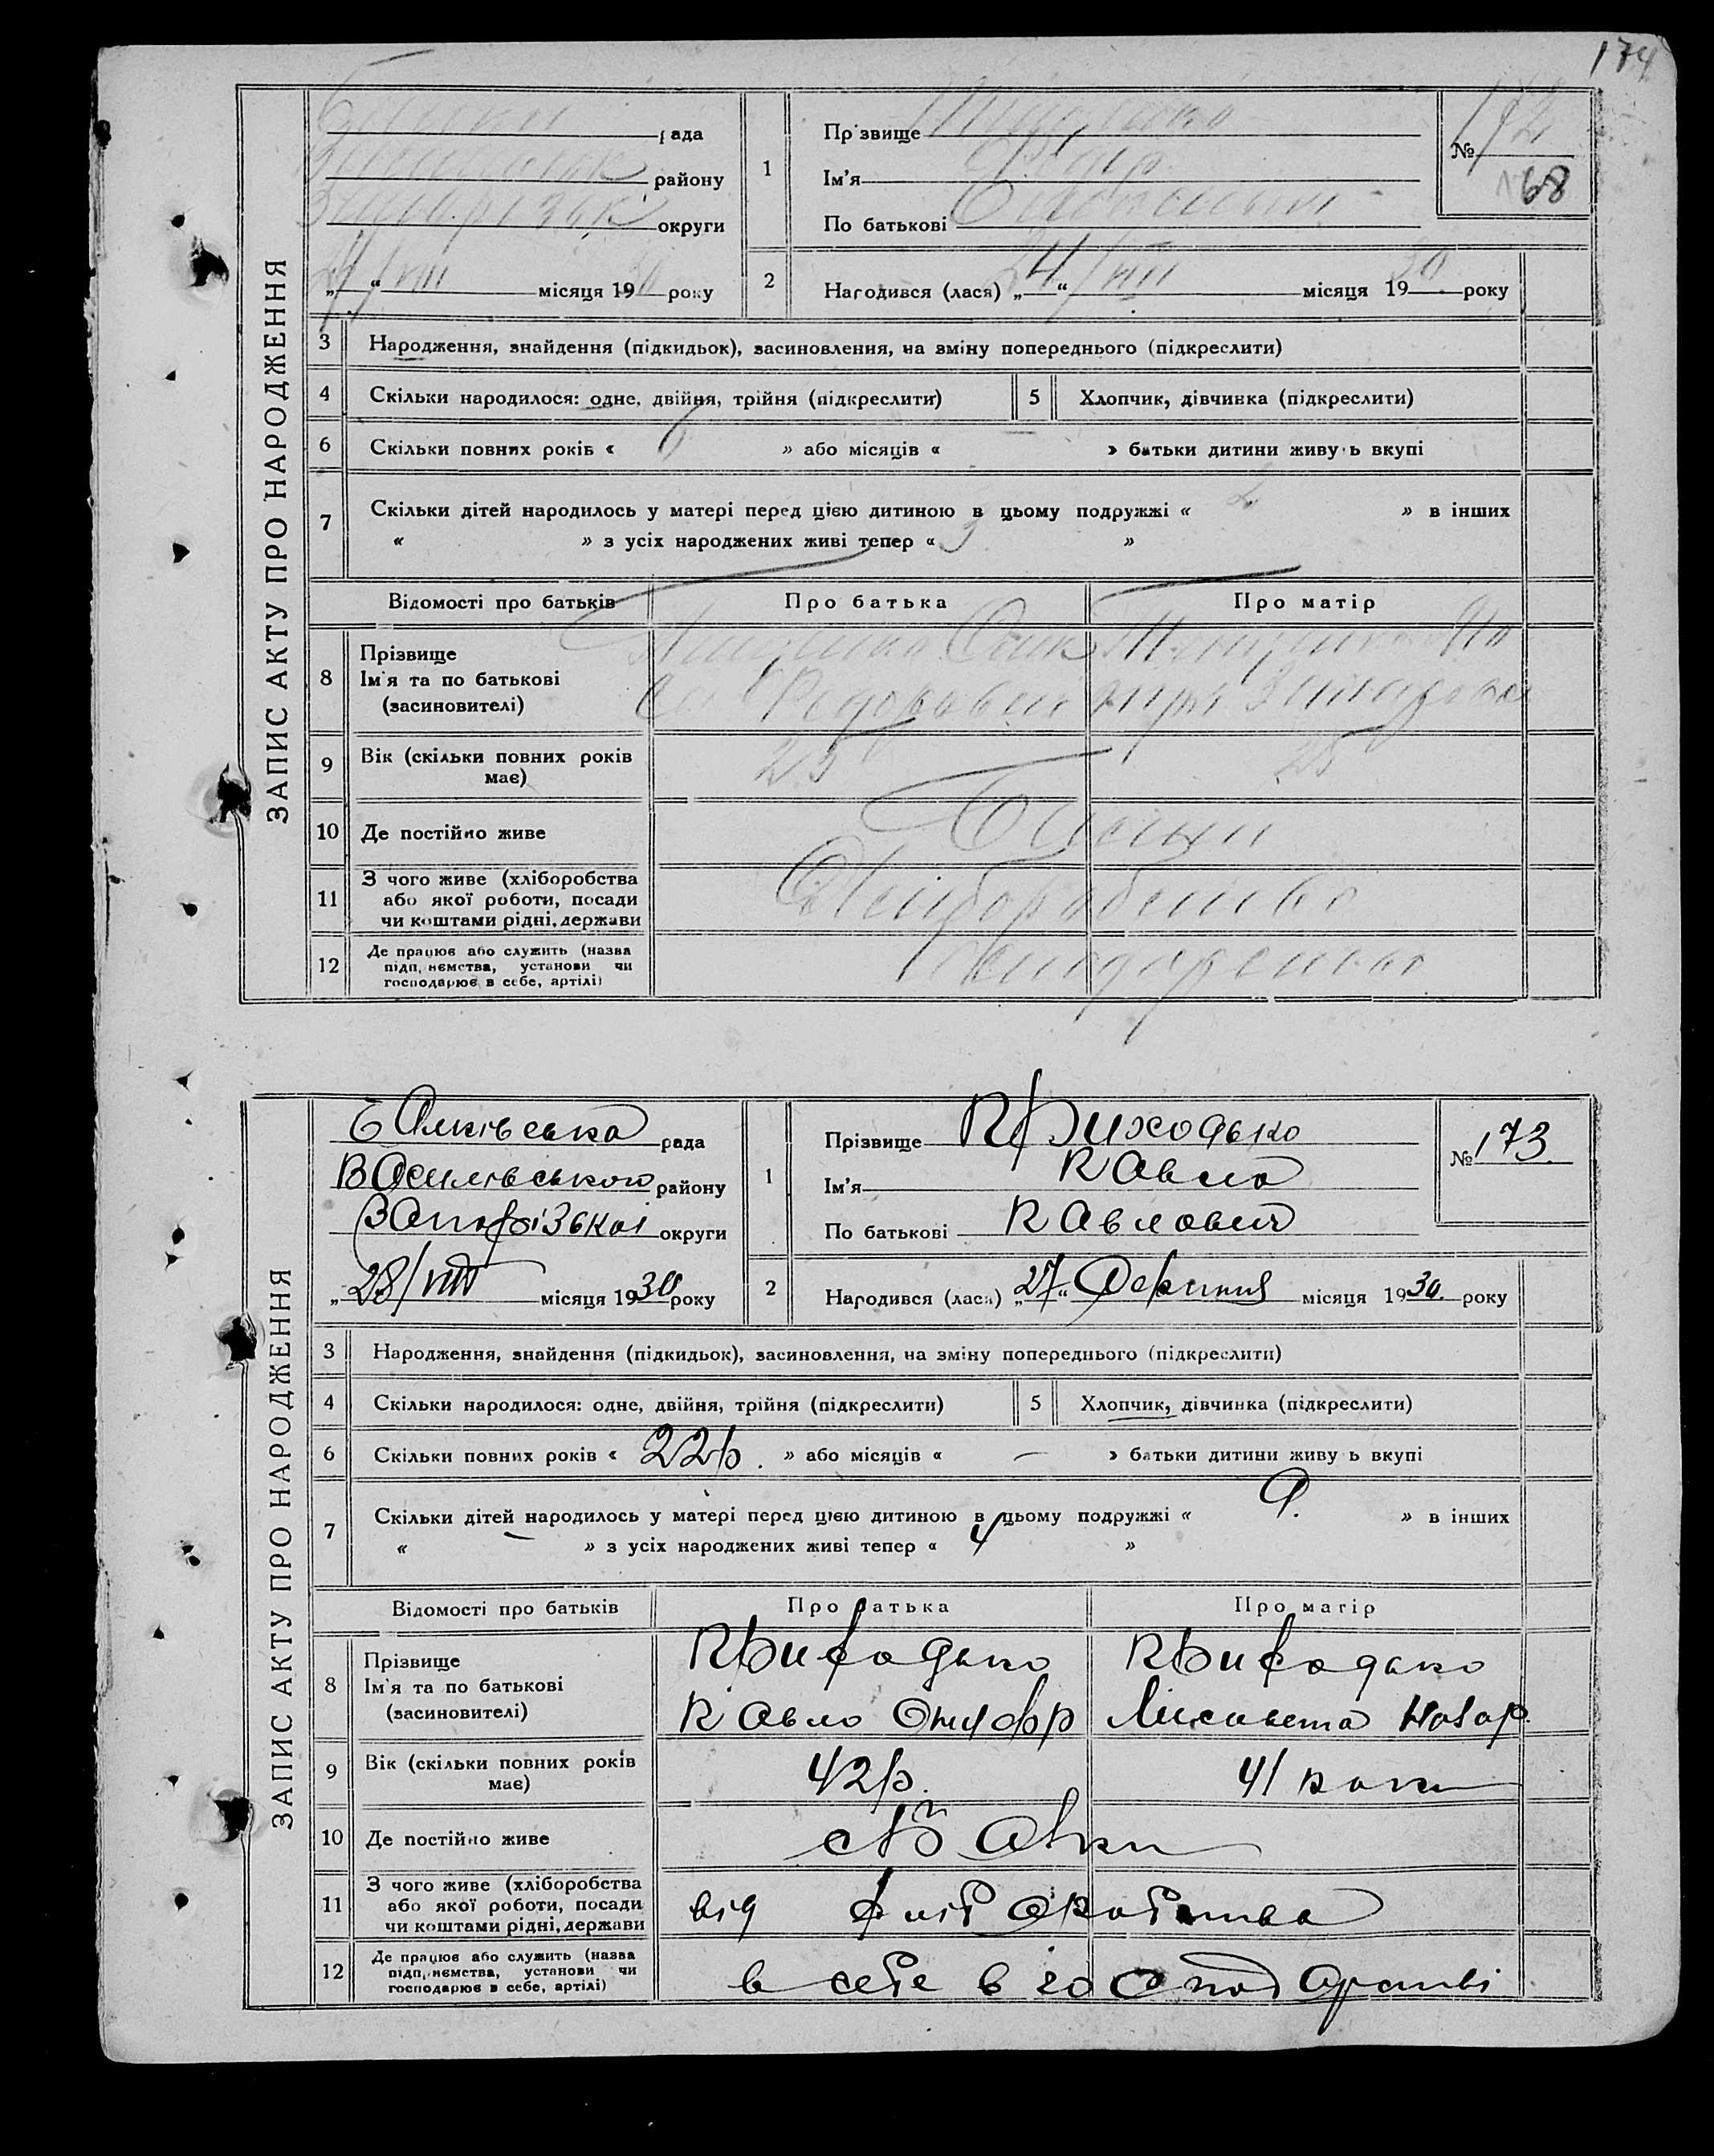 174
ЗАПИС АКТУ ПРО НАРОДЖЕННЯ
рада
району
Запорізьк округи
„ “ VIII місяця 1930 року
1
Прізвище
Ім'я
По батькові
№ 172
68
2
Народився (лася) „24“ VIII місяця 1930 року
3 Народження, знайдення (підкидьок), засиновлення, на зміну попереднього (підкреслити)
4 Скільки народилося: одне, двійня, трійня (підкреслити)
5 Хлопчик, дівчинка (підкреслити)
6 Скільки повних років « 6 » або місяців « — » батьки дитини живуть вкупі
7 Скільки дітей народилось у матері перед цією дитиною в цьому подружжі « 2 » в інших
« » з усіх народжених живі тепер « 3 »
Відомості про батьків Про батька Про матір
8 Прізвище
Ім'я та по батькові
(засиновителі)
Федорович
9 Вік (скільки повних років має) 25 25
10 Де постійно живе
11 З чого живе (хліборобства або якої роботи, посади чи коштами рідні, держави Хліборобство
12 Де працює або служить (назва підприємства, установи чи господарює в себе, артілі)
ЗАПИС АКТУ ПРО НАРОДЖЕННЯ
Балківська рада
Василівського району
Запорізької округи
„28/VIII місяця 1930 року
1
Прізвище Приходько
Ім'я Павло
По батькові Павлович
№ 173.
2
Народився (лася) „27“ Серпния місяця 1930. року
3 Народження, знайдення (підкидьок), засиновлення, на зміну попереднього (підкреслити)
4 Скільки народилося: одне, двійня, трійня (підкреслити)
5 Хлопчик, дівчинка (підкреслити)
6 Скільки повних років « 22р. » або місяців « — » батьки дитини живуть вкупі
7 Скільки дітей народилось у матері перед цією дитиною в цьому подружжі « 9. » в інших
« — » з усіх народжених живі тепер « 4 »
Відомості про батьків Про батька Про матір
8 Прізвище
Ім'я та по батькові
(засиновителі)
Приходько Приходько
Павло Онуфр Лисавета Назар.
9 Вік (скільки повних років має) 42р. 41 роки
10 Де постійно живе с Балки
11 З чого живе (хліборобства або якої роботи, посади чи коштами рідні, держави від хліборобства
12 Де працює або служить (назва підприємства, установи чи господарює в себе, артілі) в себе в господарстві